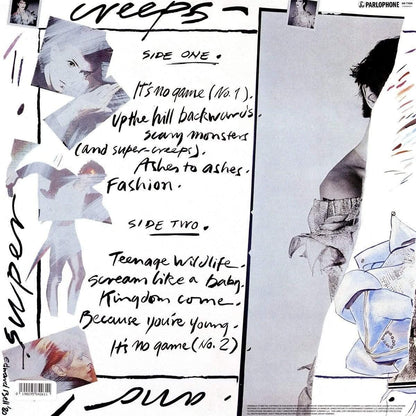 creeps
PARLOPHONE
SIDE ONE.
It's no game (No. 1).
Up the hill backwards.
Scary monsters
(and super-creeps).
Ashes to ashes.
Fashion.
SIDE TWO.
Teenage Wildlife.
Scream like a baby.
Kingdom come.
Because you're young.
It's no game (No. 2)
super
and